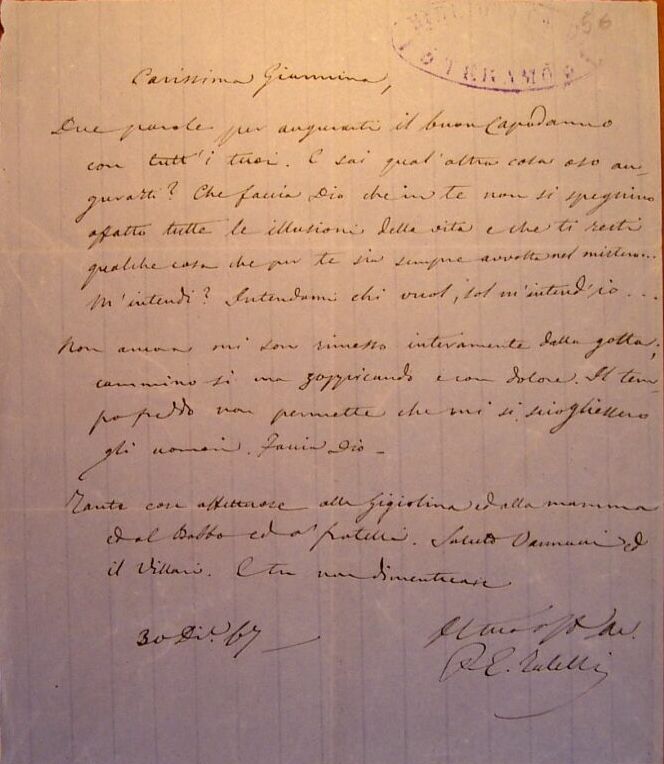 BIBLIOTECA
TERAMO
56
Carissima Giannina,
Due parole per augurarti il buon Capodanno
con tutt'i tuoi. E sai qual'altra cosa oso au-
gurarti? Che faccia Dio che in te non si spegnino
affatto tutte le illusioni della vita e che ti resti
qualche cosa che per te sia sempre avvolta nel mistero...
M'intendi? Intendami chi vuol, sol m'intend'io....
Non ancora mi son rimesso interamente dalla gotta;
cammino sì ma zoppicando e con dolore. Il tem-
po freddo non permette che mi si sciogliessero
gli umori. Faccia Dio -
Tante cose affettuose alla Gigiolina ed alla mamma
ed al Babbo ed a' fratelli. Saluto Vannucci ed
il Villari. E tu non dimenticare
30 Dic. 67 -
Il tuo
P. E.